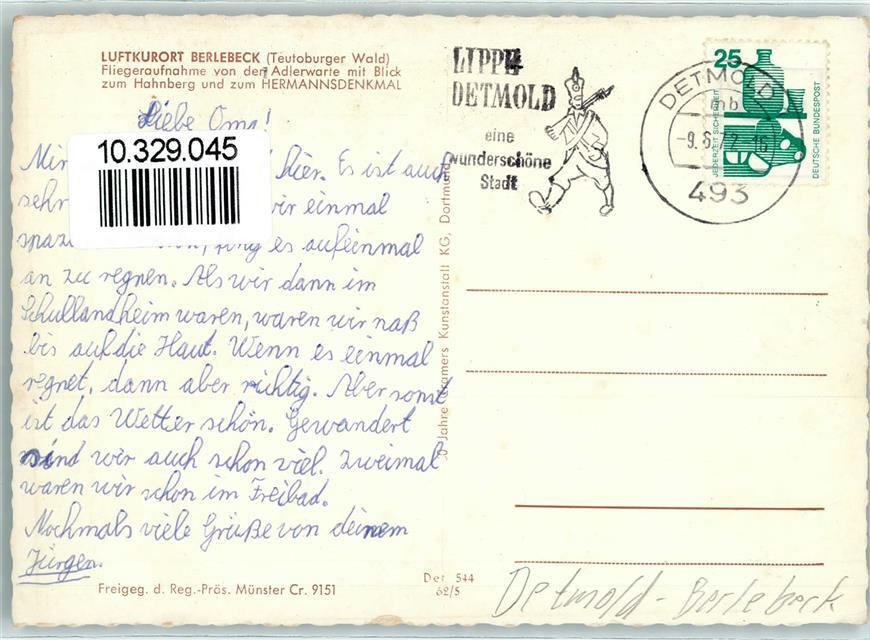 LUFTKURORT BERLEBECK (Teutoburger Wald)
Fliegeraufnahme von der Adlerwarte mit Blick
zum Hahnberg und zum HERMANNSDENKMAL
Liebe Oma!
10.329.045
hier. Es ist auch
sehr wir einmal
fing es aufeinmal
an zu regnen. Als wir dann im
Schullandheim waren, waren wir naß
bis auf die Haut. Wenn es einmal
regnet, dann aber richtig. Aber sonst
ist das Wetter schön. Gewandert
sind wir auch schon viel. Zweimal
waren wir schon im Freibad.
Nochmals viele Grüße von deinem
Jürgen.
Freigeg. d. Reg.-Präs. Münster Cr. 9151
Det 544
62/5
Jahre Cramers Kunstanstalt KG, Dortmund
LIPPE
DETMOLD
eine
wunderschöne
Stadt
DETMOLD
mb
493
25
JEDERZEIT SICHERHEIT
DEUTSCHE BUNDESPOST
Detmold-Berlebeck